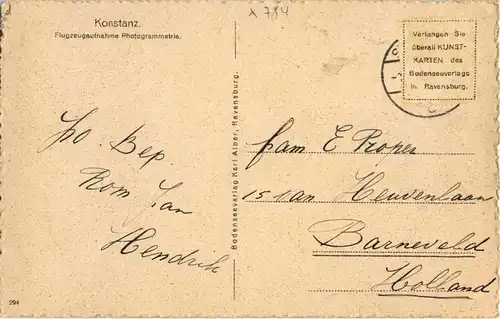 x 784
Konstanz.
Flugzeugaufnahme Photogrammetrie.
Verlangen Sie
überall KUNST-
KARTEN des
Bodenseeverlags
in Ravensburg.
Bodenseeverlag Karl Alber, Ravensburg.
Bep
Rom Jan
Hendrik
fam E Proper
Heuvenlaan
Barneveld
Holland
294